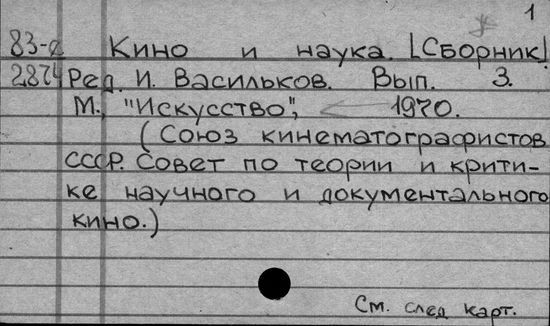 1
83-2 Кино и наука. [Сборник]
2874 Ред. И. Васильков. Вып. 3.
М., "Искусство", 1970.
(Союз кинематографистов
СССР. Совет по теории и крити-
ке научного и документального
кино.)
См. след карт.